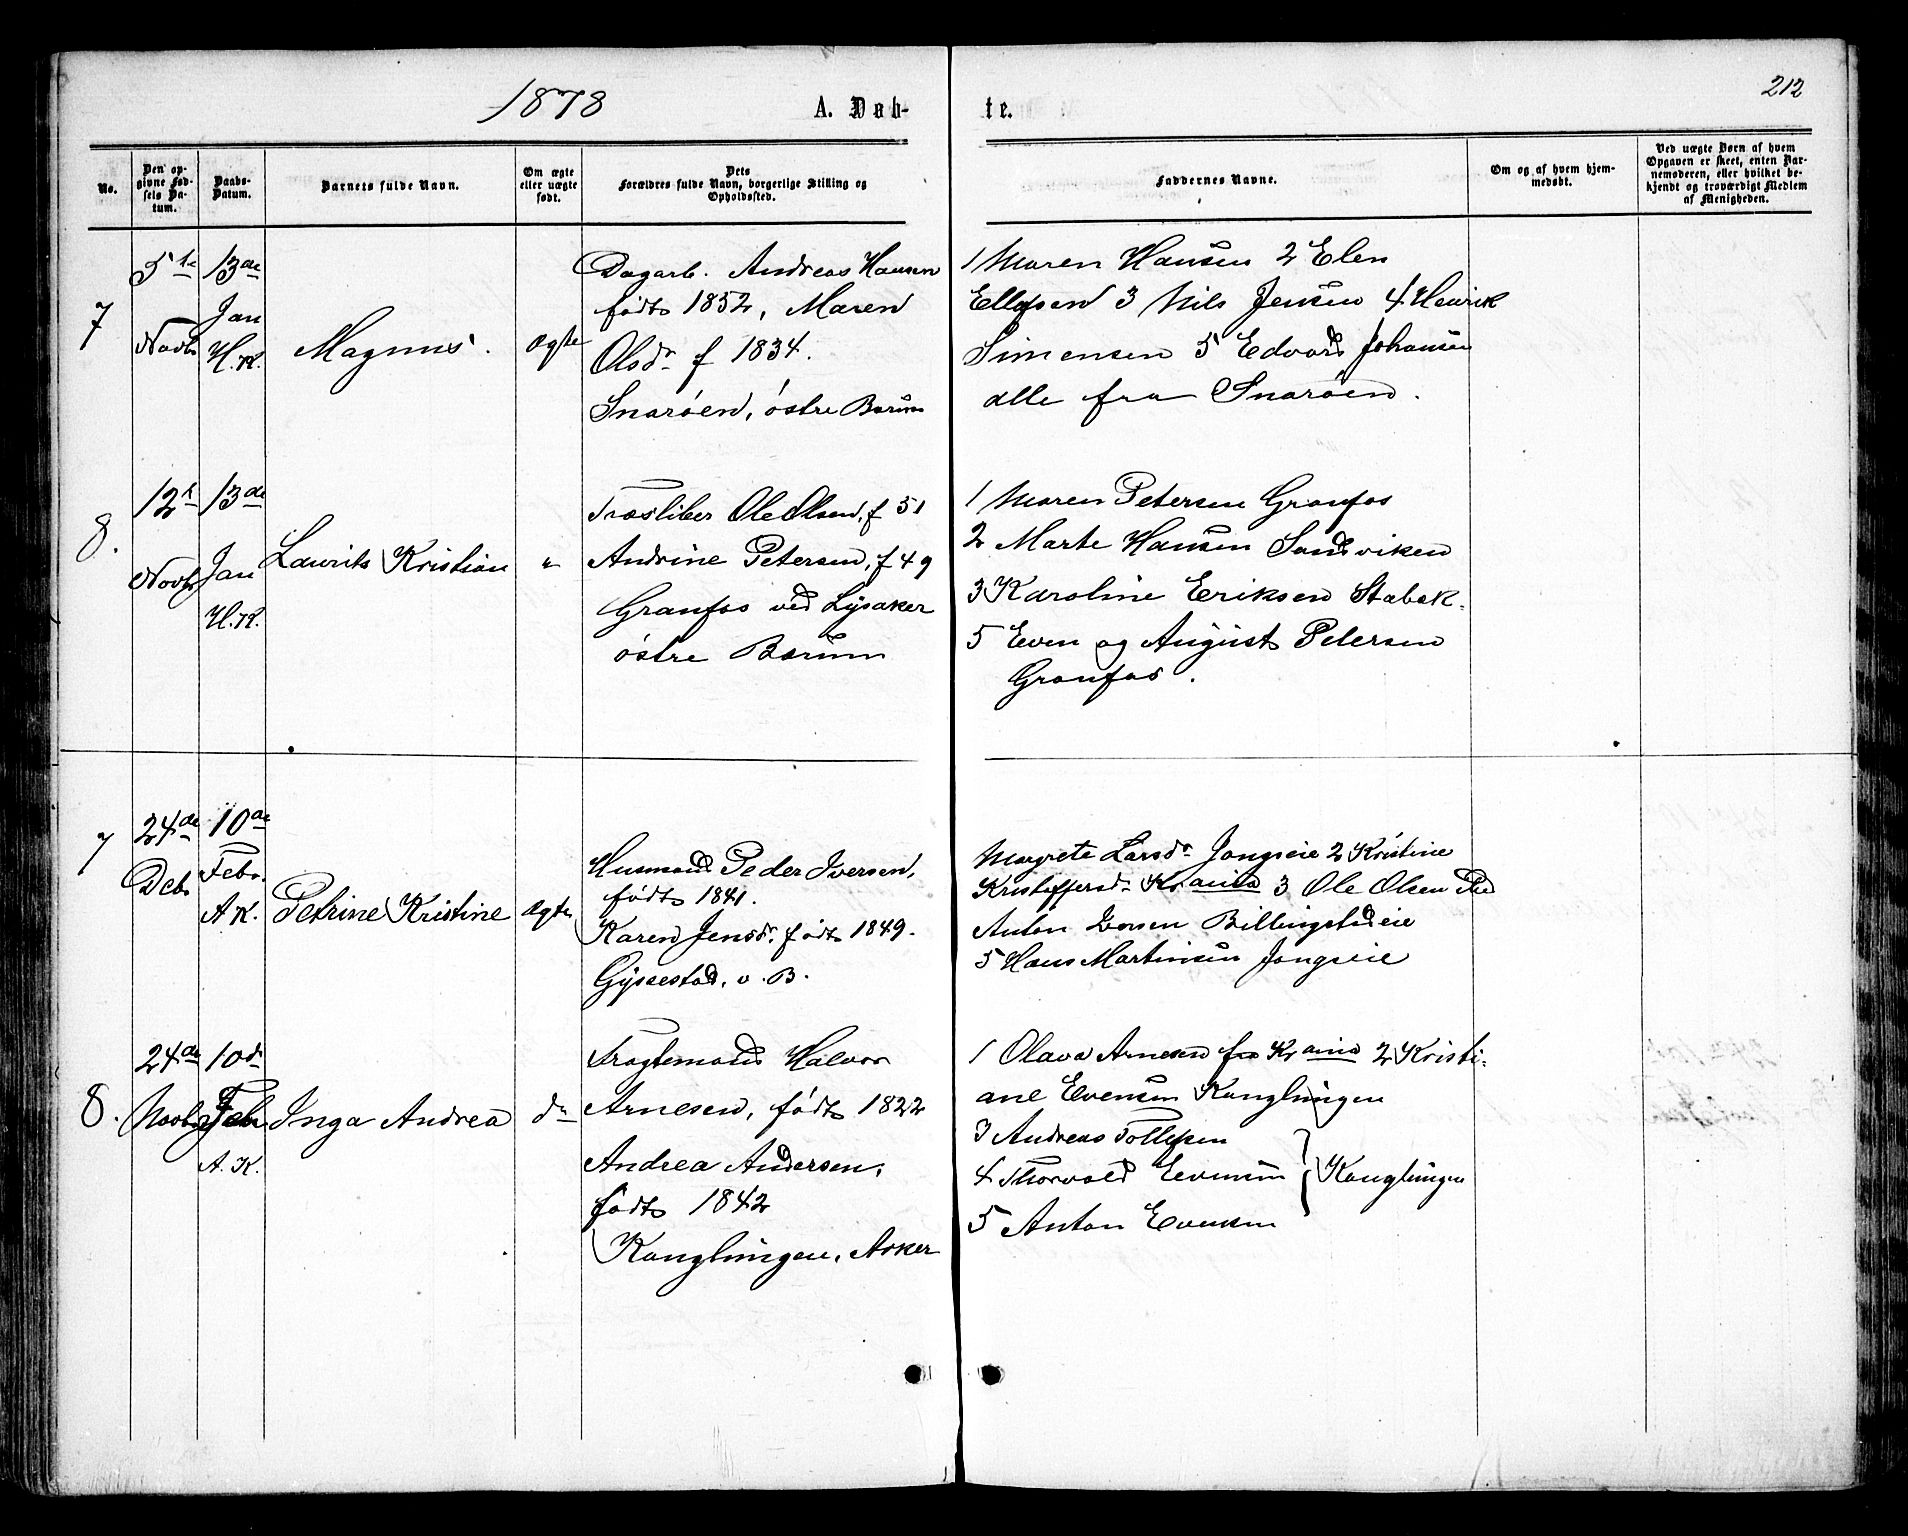 1878
A. Døb-
te.
212
No.
Den op-
givne Fød-
sels Da-
tum.
Daabs-
Datum.
Barnets fulde Navn.
Om ægte
eller uægte
født.
Dets
Forældres fulde Navn, borgerlige Stilling og
Opholdssted.
Faddernes Navne.
Om og af hvem hjem-
medøbt.
Ved uægte Børn af hvem
Opgaven er skeet, enten Bar-
nemoderen, eller hvilket be-
kjendt og troværdigt Medlem
af Menigheden.
7
5te
Novbr
13de
Jan
H.K.
Magnus.
ægte
Dagarb. Andreas Hansen
födt 1852, Maren
Olsdr f 1834.
Snaröen, östre Bærum
1 Maren Hansen 2 Elen
Ellefsen 3 Nils Jensen 4 Henrik
Simensen 5 Edvard Johansen
alle fra Snaröen.
8.
12t
Novbr
13de
Jan
H.K.
Laurits Kristian
"
Træsliber Ole Olsen, f 51
Andrine Petersen, f 49
Granfos ved Lysaker
östre Bærum
1 Maren Petersen Granfos
2 Marte Hansen Sandviken
3 Karoline Eriksen Stabæk.
5 Even og August Petersen
Granfos.
7
24de
Debr
10de
Febr.
A K.
Petrine Kristine
ægte
Husmand Peder Iversen,
födt 1841.
Karen Jensdr. födt 1849.
Gjssestad, v. B.
Margrete Larsdr Jongseie 2 Kristine
Kristoffersdr Krania 3 Ole Olsen
Anton Billingstadeie
5 Hans Martinsen Jongseie
8.
24de
Novbr
10de
Feb
A. K.
Inga Andrea
do
Fragtemand Halvor
Arnesen, födt 1822
Andrea Andersen,
födt 1842
Konglungen, Asker
1 Olava Arnesen fra Krania 2 Kristi-
ane Evensen Konglungen
3 Andreas Tollefsen
4 Thorvald Evensen } Konglungen
5 Anton Evensen